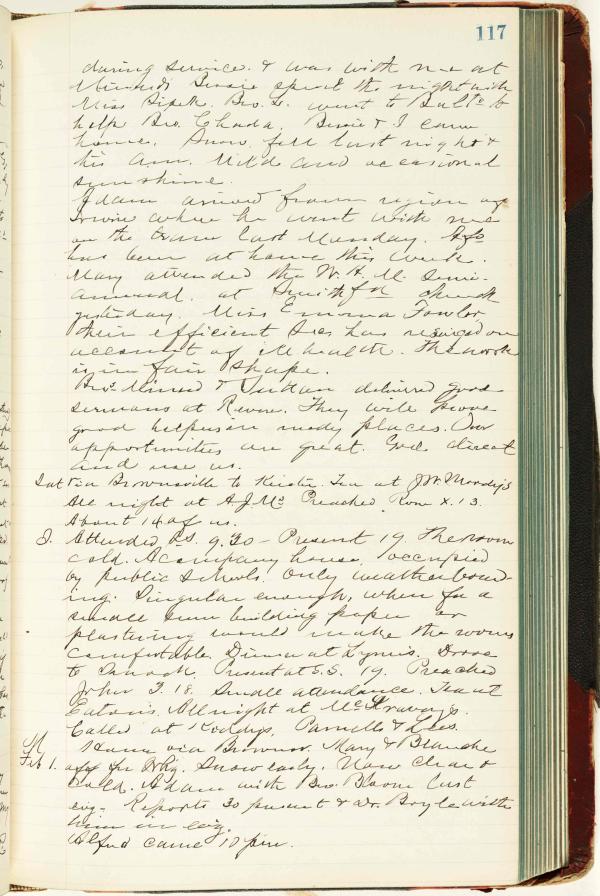 117
during service. & was with me at
Bessie spent the night with
Miss Bro. L. went to Balto to
help Bro. Chada. Bessie & I came
home. Snow fell last night &
this a.m. Mild and occasional
sunshine.
Adam arrived from region of
Irwin where he went with me
on the train last Monday.
has been at home this week.
Mary attended the W. H. M. Semi-
annual at Smithfd church
yesterday. Miss Emma Fowler
their efficient Sec has resigned on
account of ill health. The work
is in fair shape.
Bros. & delivered good
sermons at Revere. They will prove
good helpers in needy places. Our
opportunities are great. God direct
and use us.
Sat via Brownsville to Tea at J.W. Moody's
All night at A.J. Mc Preached Rom X. 13.
About 14 of us.
S. Attended S.S. 9.30 - Present 19. The room
cold. A company house, occupied
by public schools. Only weatherboard-
ing. Singular enough, when for a
small sum building paper or
plastering would make the rooms
comfortable. Dinner at Drove
to Present at S.S. 19. Preached
John 3.18. Small attendance. Tea at
Eaton's. All night at
Called at Parnells & Lees.
M Home via Browns. Mary & Blanche
Feb 1. off for Snow early. Now clear &
cold. Adam with Bro. Bloom last
evg. Reports 30 present & Dr. Boyle with
him in evg.
Alfred came 10 p.m.